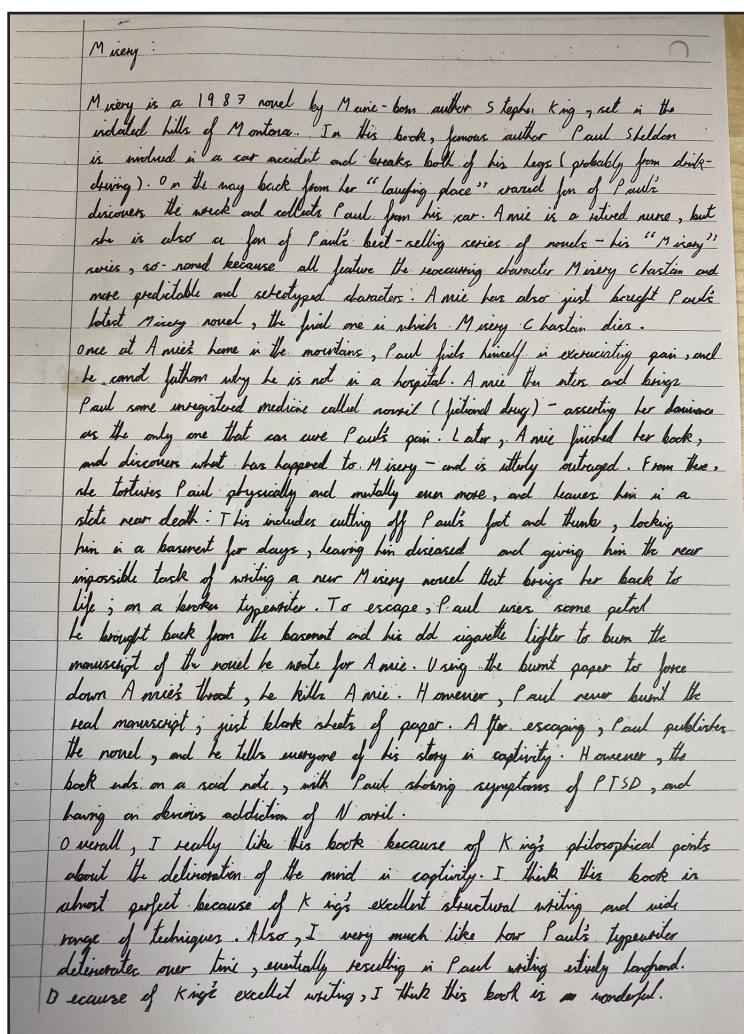 Misery :
Misery is a 1987 novel by Maine-born author Stephen King, set in the
isolated hills of Montana. In this book, famous author Paul Sheldon
is involved in a car accident and breaks both of his legs (probably from drink-
driving). On the way back from her "laughing place" crazed fan of Paul's
discovers the wreck and collects Paul from his car. Annie is a retired nurse, but
she is also a fan of Paul's best-selling series of novels - his "Misery"
series, so-named because all feature the reoccurring character Misery Chastain and
more predictable and sereotyped characters. Annie has also just bought Paul's
latest Misery novel, the final one in which Misery Chastain dies.
Once at Annie's home in the mountains, Paul finds himself in excruciating pain, and
he cannot fathom why he is not in a hospital. Annie then enters and brings
Paul some unregistered medicine called novril (fictional drug) - asserting her dominance
as the only one that can cure Paul's pain. Later, Annie finished her book,
and discovers what has happened to Misery - and is utterly outraged. From there,
she tortures Paul physically and mentally even more, and leaves him in a
state near death: This includes cutting off Paul's foot and thumb, locking
him in a basement for days, leaving him diseased and giving him the near
impossible task of writing a new Misery novel that brings her back to
life; on a broken typewriter. To escape, Paul uses some petrol
he brought back from the basement and his old cigarette lighter to burn the
manuscript of the novel he wrote for Annie. Using the burnt paper to force
down Annie's throat, he kills Annie. However, Paul never burnt the
real manuscript; just blank sheets of paper. After escaping, Paul publishes
the novel, and he tells everyone of his story in captivity. However, the
book ends on a said note, with Paul showing symptoms of PTSD, and
having an obvious addiction of Novril.
Overall, I really like this book because of King's philosophical points
about the deterioration of the mind in captivity. I think this book is
almost perfect because of King's excellent structural writing and wide
range of techniques. Also, I very much like how Paul's typewriter
deteriorates over time, eventually resulting in Paul writing entirely longhand.
Because of King's excellent writing, I think this book is wonderful.